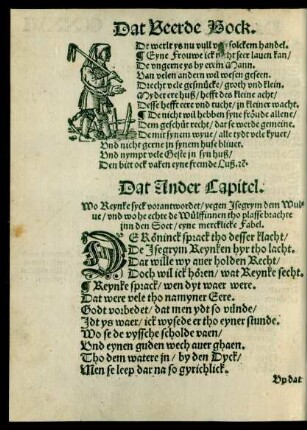 Dat Veerde Bock.
De werlt ys nu vull van solcken handel.
¶ Eyne Frouwe ick nicht seer lauen kan/
De vngerne ys by erem Mann.
Van velen andern wil wesen geseen.
Drecht vele gesmücke/ groth vnd klein.
Myder ere huß/ hefft des kleine acht/
Desse hefft ere vnd tucht/ in kleiner wacht.
¶ De nicht wil hebben syne fröude allene/
Dem geschüt recht/ dat se werde gemeine.
De mit synem wyue/ alle tydt vele kyuet/
Vnd nicht gerne jn synem huse blyuet.
Vnd nympt vele Geste jn syn huß/
Den bitt ock vaken eyne fremde Luß. ꝛc.
Dat Ander Capitel.
Wo Reynke syck vorantwordet/ yegen Jsegrym dem Wul-
ue/ vnd wo he echte de Wülffinnen tho plasse brachte
jnn den Soet/ eyne merckliche Fabel.
DE Köninck sprack tho desser klacht/
De Jsegrym Reynken hyr tho lacht.
Dat wille wy auer holden Recht/
Doch wil ick hören/ wat Reynke secht.
¶ Reynke sprack/ wen dyt waer were.
Dat were vele tho na myner Eere.
Godt vorbedet/ dat men ydt so vünde/
Jdt ys waer/ ick wysede er tho eyner stunde.
Wo se de vyssche scholde vaen/
Vnd eynen guden wech auer ghaen.
Tho dem watere jn/ by den Dyck/
Men se leep dar na so gyrichlick.
Vp dat